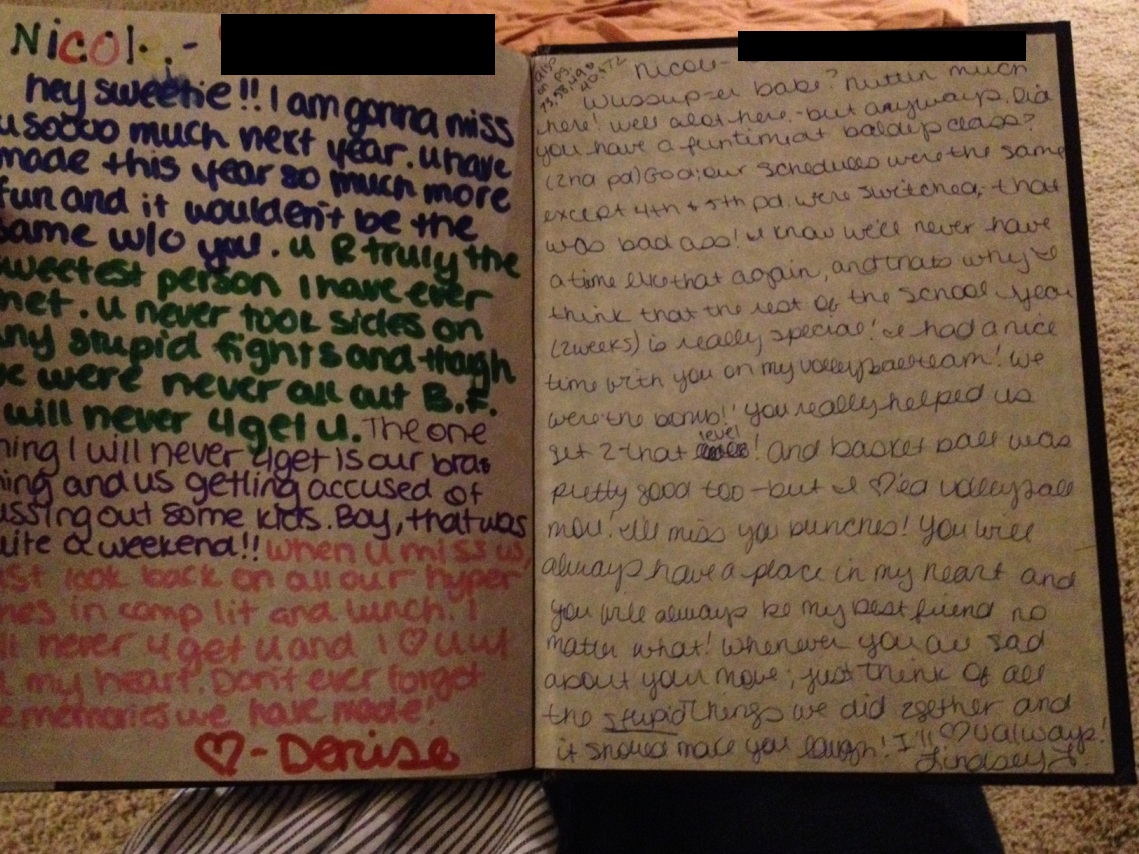 Nicole -
hey sweetie!! I am gonna miss
u soooo much next year. u have
made this year so much more
fun and it wouldn't be the
same w/o you. u R truly the
sweetest person I have ever
met. u never took sides on
any stupid fights and though
we were never all out B.F.
I will never 4get u. The one
thing I will never 4get is our bras
thing and us getting accused of
cussing out some kids. Boy, that was
quite a weekend!! when u miss us,
just look back on all our hyper
times in comp lit and lunch. I
will never 4get u and I ♡ U w/
all my heart. Don't ever forget
the memories we have made!
♡ - Denise
also
on pg.
73, 58, 49,
Nicole -
Wussup-er babe? Nuttin much
here! well alot here - but anyways. Did
you have a fun time at class?
(2nd pd) God; our schedules were the same
except 4th + 5th pd. were switched, that
was bad ass! I know we'll never have
a time like that again, and thats why I
think that the rest of the school year
(2 weeks) is really special! I had a nice
time with you on my volleyball team! We
were the bomb! You really helped us
get 2 that level! And basket ball was
pretty good too - but I ♡'ed volleyball
mou! I'll miss you bunches! You will
always have a place in my heart and
you will always be my best friend no
matter what! Whenever you are sad
about your move; just think of all
the stupid things we did 2gether and
it should make you laugh! I'll ♡ U always!
Lindsey